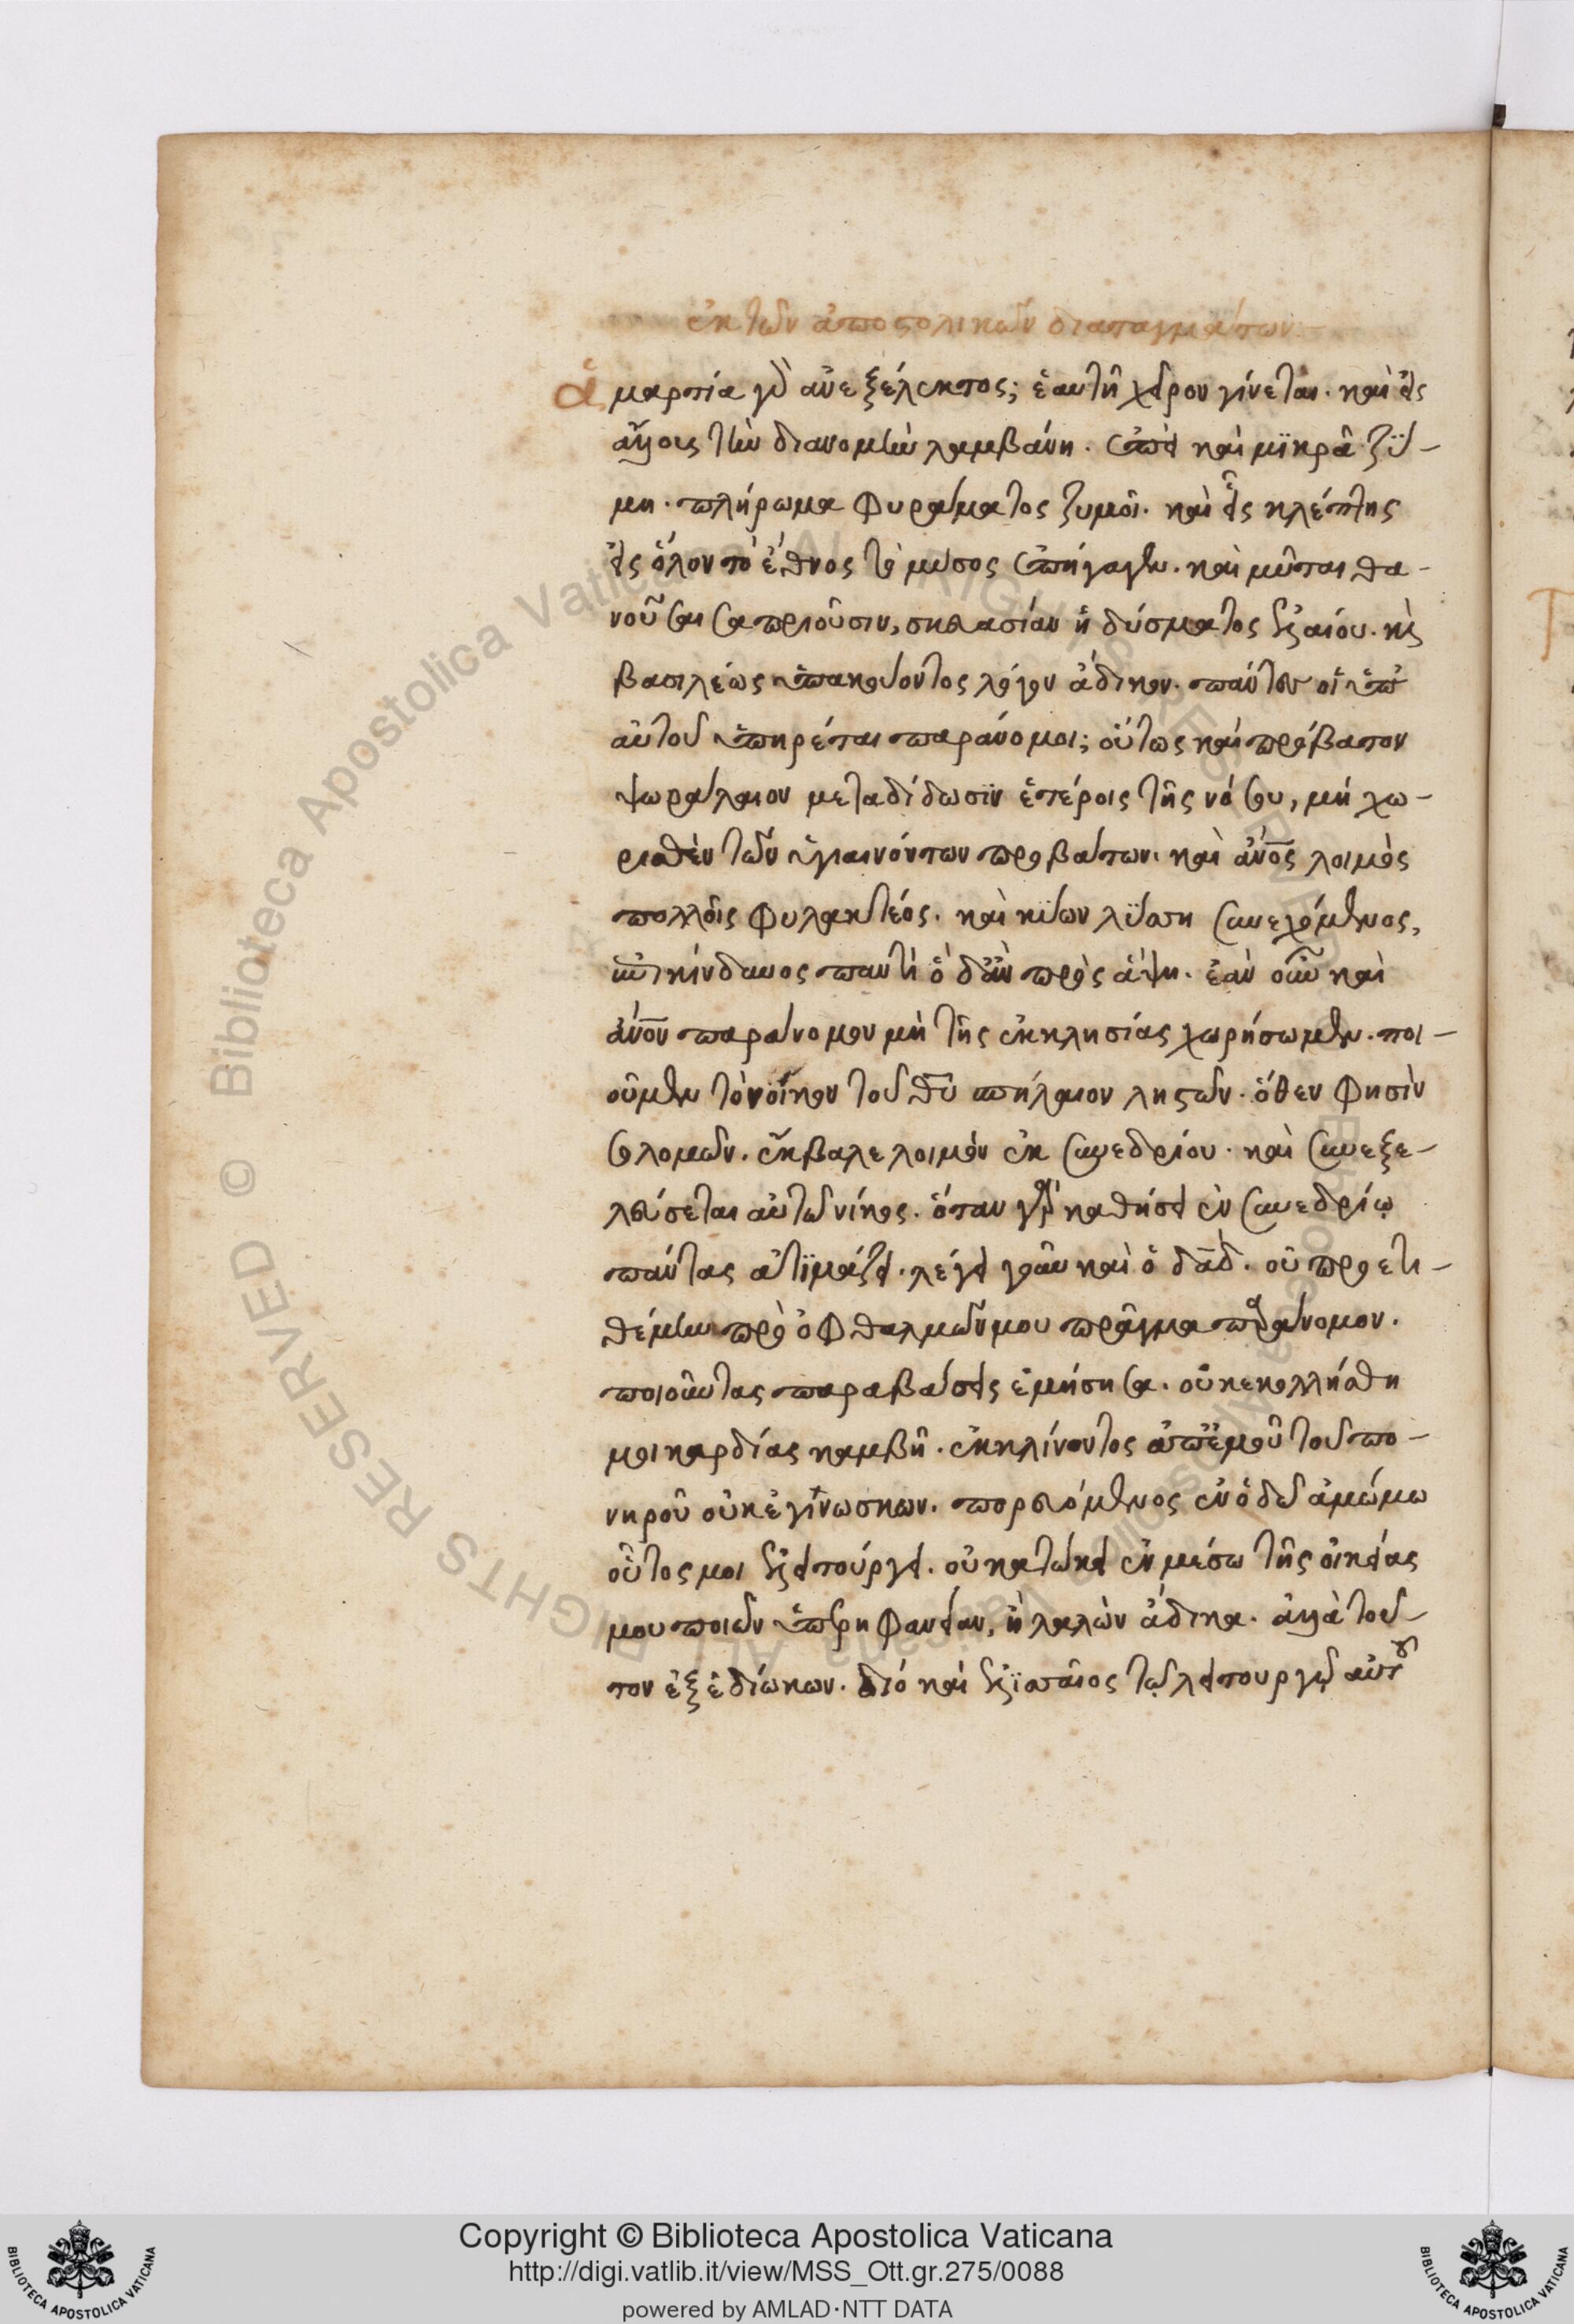 ἐκ τῶν ἀποστολικῶν διαταγμάτων
ἁμαρτία γὰρ ἀνεξέλεγκτος; ἑαυτῆ χείρον γίνεται. καὶ εἰς
ἄλλοις τὴν διανομὴν λαμβάνη. ἐπεὶ καὶ μϊκρὰ ζϋ-
μη. πλήρωμα φυράματος ζυμοῖ. καὶ εἷς κλέπτης
εἰς ὅλον τὸ ἔθνος τὸ μύσος ἐπήγαγεν. καὶ μῦται θα-
νοῦσαι σαπριοῦσιν, σκευασίαν ἡ δύσματος ἐλαίου. καὶ
βασιλέως ὑπακούοντος λόγον ἄδικον. πάντες οἱ ὑπ'
αὐτοῦ ὑπηρέται παράνομοι; οὕτως καὶ πρόβατον
ψωράλαιον μεταδίδωσϊν ἑτέροις τῆς νόσου, μὴ χω-
ρισθὲν τῶν ὑγιαινόντων προβάτων. καὶ ἄνος λοιμὸς
πολλοῖς φυλακτέος. καὶ κϋων λϋσση συνεχόμενος,
κίνδυνος παντὶ ὁ δἂν πρὸς ἅψη. ἐὰν οὖν καὶ
ἄνον παράνομον μὴ τῆς ἐκκλησίας χωρήσωμεν. ποι-
οῦμεν τὸν οἶκον τοῦ θυ σπήλαιον ληστῶν. ὅθεν φησὶν
σολομῶν. ἔκβαλε λοιμὸν ἐκ συνεδρίου. καὶ συνεξε-
λεύσεται αὐτῶ νίκος. ὅταν γὰρ καθήσει ἐν συνεδρίῳ
πάντας ἀτϊμάζει. λέγει γοῦν καὶ ὁ δαδ. οὐ προετι-
θέμην πρὸ ὀφθαλμῶν μου πρᾶγμα παράνομον.
ποιοῦντας παραβάσεις ἐμήσησα. οὐκ ἐκολλήθη
μοι καρδίας καμβῆ. ἐκκλίνοντος ἀπ' ἐμοῦ τοῦ πο-
νηροῦ οὐκ ἐγίνωσκων. πορευόμενος ἐν ὁδῶ ἀμώμω
οὗτος μοι ἐλειτούργει. οὐ κατώκει ἐν μέσω τῆς οἰκείας
μου ποιῶν ὑπερηφανείαν, ἢ λαλὼν ἄδικα. ἀλλὰ τοῦ-
τον ἐξεδίωκων. διό καὶ τῷ λειτουργῷ αὐτοῦ
Copyright © Biblioteca Apostolica Vaticana
http://digi.vatlib.it/view/MSS_Ott.gr.275/0088
powered by AMLAD·NTT DATA